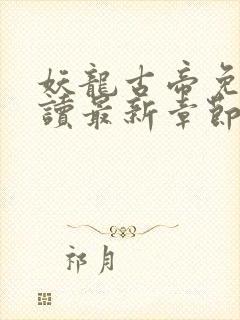 妖龍古帝免
讀最新章節
祁月